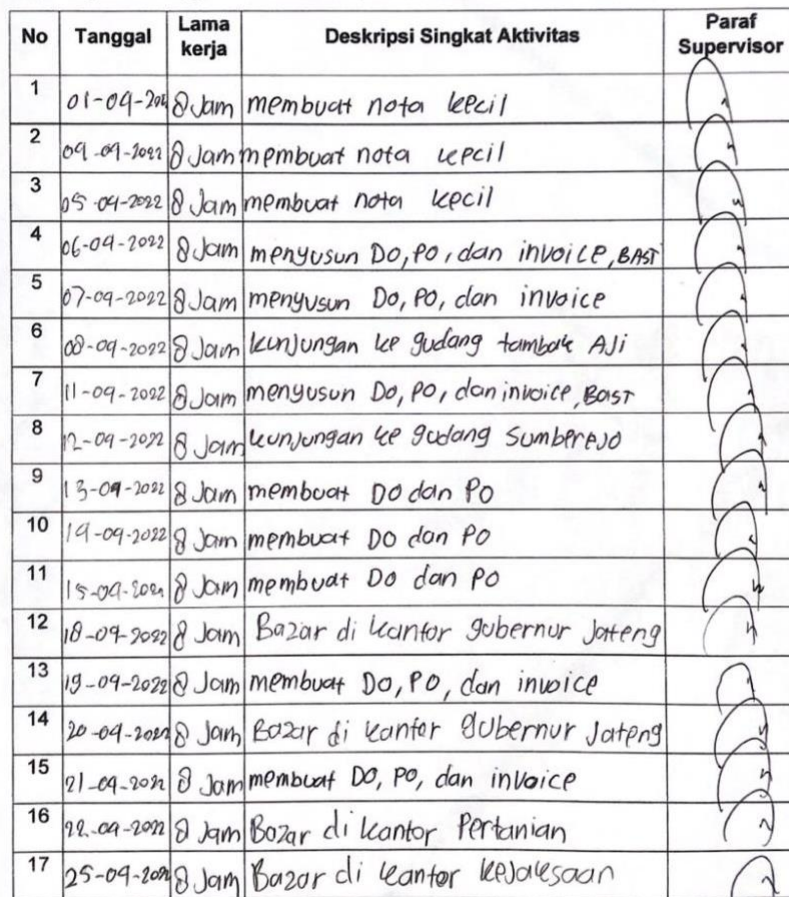 No Tanggal Lama kerja Deskripsi Singkat Aktivitas Paraf Supervisor
1 01-04-202 8 Jam membuat nota kecil
2 04-04-2022 8 Jam membuat nota kecil
3 05-04-2022 8 Jam membuat nota kecil
4 06-04-2022 8 Jam menyusun Do, Po, dan invoice, BAST
5 07-04-2022 8 Jam menyusun Do, Po, dan invoice
6 08-04-2022 8 Jam kunjungan ke gudang tambak Aji
7 11-04-2022 8 Jam menyusun Do, Po, dan invoice, BAST
8 12-04-2022 8 Jam kunjungan ke gudang Sumberejo
9 13-04-2022 8 Jam membuat Do dan Po
10 14-04-2022 8 Jam membuat Do dan Po
11 15-04-2022 8 Jam membuat Do dan Po
12 18-04-2022 8 Jam Bazar di kantor gubernur Jateng
13 19-04-2022 8 Jam membuat Do, Po, dan invoice
14 20-04-2022 8 Jam Bazar di kantor gubernur Jateng
15 21-04-2022 8 Jam membuat Do, Po, dan invoice
16 22-04-2022 8 Jam Bazar di kantor Pertanian
17 25-04-2022 8 Jam Bazar di kantor kejaksaan